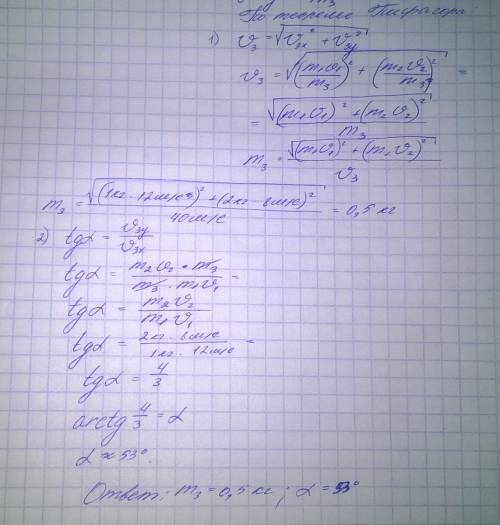 m₃
По теореме Пифагора:
1) v₃ = √(v₃ₓ² + v₃ᵧ²)
v₃ = √((m₁v₁/m₃)² + (m₂v₂/m₃)²) =
= √((m₁v₁)² + (m₂v₂)²) / m₃
m₃ = √((m₁v₁)² + (m₂v₂)²) / v₃
m₃ = √((1кг · 12м/с)² + (2кг · 8м/с)²) / 40м/с = 0,5 кг
2) tgα = v₃ᵧ / v₃ₓ
tgα = m₂v₂ · m₃ / m₃ · m₁v₁ =
tgα = m₂v₂ / m₁v₁
tgα = 2кг · 8м/с / 1кг · 12м/с =
tgα = 4/3
arctg 4/3 = α
α ≈ 53°.
Ответ: m₃ = 0,5 кг ; α = 53°